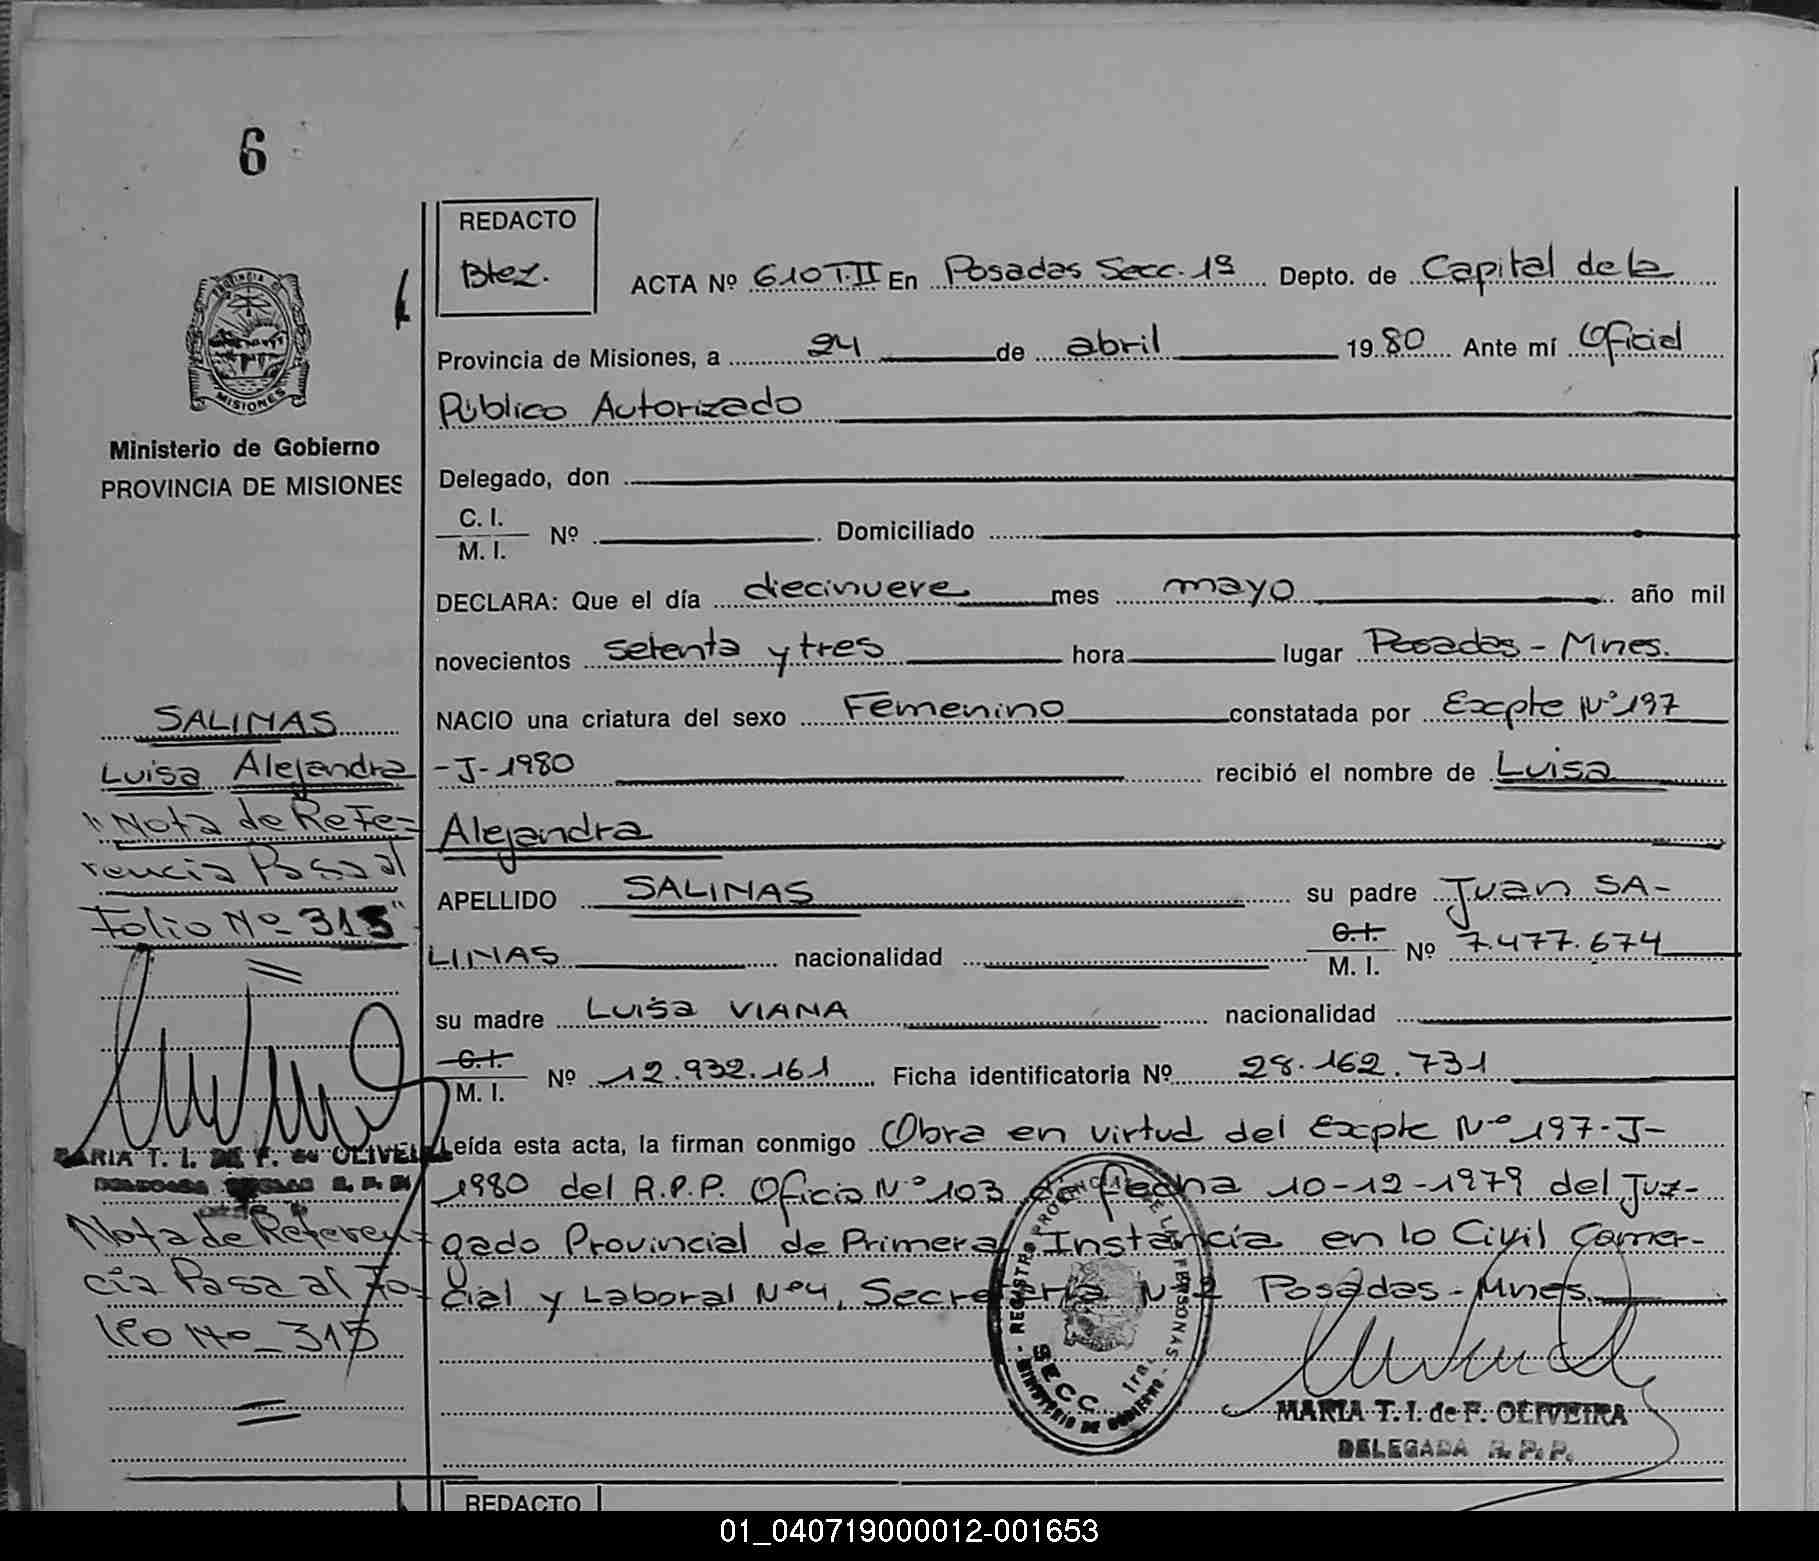 6
REDACTO
Btez.
ACTA Nº 610 T.II En Posadas Secc. 1ª Depto. de Capital de la
Provincia de Misiones, a 24 de abril 1980 Ante mí Oficial
Público Autorizado
Delegado, don
C. I.
M. I.
Nº Domiciliado
DECLARA: Que el día diecinueve mes mayo año mil
novecientos setenta y tres hora lugar Posadas - Mnes.
NACIO una criatura del sexo Femenino constatada por Excpte Nº 197
-J-1980 recibió el nombre de Luisa
Alejandra
APELLIDO SALINAS su padre Juan SA-
LINAS nacionalidad C.I. M. I. Nº 7.477.674
su madre Luisa VIANA nacionalidad
C.I. M. I. Nº 12.932.161 Ficha identificatoria Nº 28.162.731
Leída esta acta, la firman conmigo Obra en virtud del Excpte Nº 197-J-
1980 del R.P.P. Oficio Nº 103 de fecha 10-12-1979 del Juz-
gado Provincial de Primera Instancia en lo Civil Comer-
cial y Laboral Nº 4, Secretaría Nº 2 Posadas - Mnes.
REGISTRO PROVINCIAL DE LAS PERSONAS
SECC. 1ra.
MINISTERIO DE GOBIERNO
MARIA T. I. de F. OLIVEIRA
DELEGADA R. P. P.
PROVINCIA DE
MISIONES
Ministerio de Gobierno
PROVINCIA DE MISIONES
SALINAS
Luisa Alejandra
"Nota de Refe-
rencia Pasa al
Folio Nº 315"
MARIA T. I. DE F. de OLIVEI
Nota de Referen-
cia Pasa al Fo-
lio Nº 315
REDACTO
01_040719000012-001653